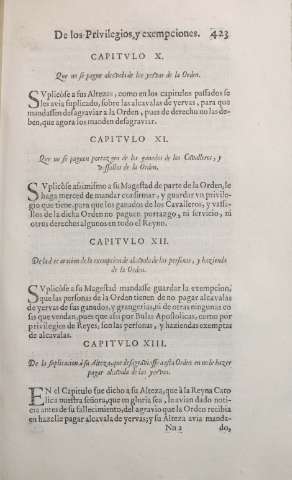 De los Privilegios, y exempciones. 423
CAPITVLO X.
Que no se pague alcavala de las yervas de la Orden.
SVplicóse a sus Altezas, como en los capitulos passados se
les avia suplicado, sobre las alcavalas de yervas, para que
mandassen desagraviar a la Orden, pues de derecho no las de-
ben, que agora los manden desagraviar.
CAPITVLO XI.
Que no se paguen portazgos de los ganados de los Cavalleros, y
vassallos de la Orden.
SVplicóse asimismo a su Magestad de parte de la Orden, le
haga merced de mandar confirmar, y guardar vn privile-
gio que tiene, para que los ganados de los Cavalleros, y vassa-
llos de la dicha Orden no paguen portazgo, ni servicio, ni
otros derechos algunos en todo el Reyno.
CAPITVLO XII.
De la declaracion de la exempcion de alcavala de las personas, y hazienda
de la Orden.
SVplicóse a su Magestad mandasse guardar la exempcion,
que las personas de la Orden tienen de no pagar alcavalas
de yervas de sus ganados, y grangerias, ni de otras ningunas co-
sas que vendan, pues que assi por Bulas Apostolicas, como por
privilegios de Reyes, son las personas, y haziendas exemptas
de alcavalas.
CAPITVLO XIII.
De la suplicacion à su Alteza, que desagraviasse a esta Orden en no le hazer
pagar alcavala de las yervas.
EN el Capitulo fue dicho a su Alteza, que à la Reyna Cato
lica nuestra señora, que en gloria sea, le avian dado noti-
cia antes de su fallecimiento, del agravio que la Orden recibia
en hazerle pagar alcavala de yervas; y su Alteza avia manda-
Nn 2 do,